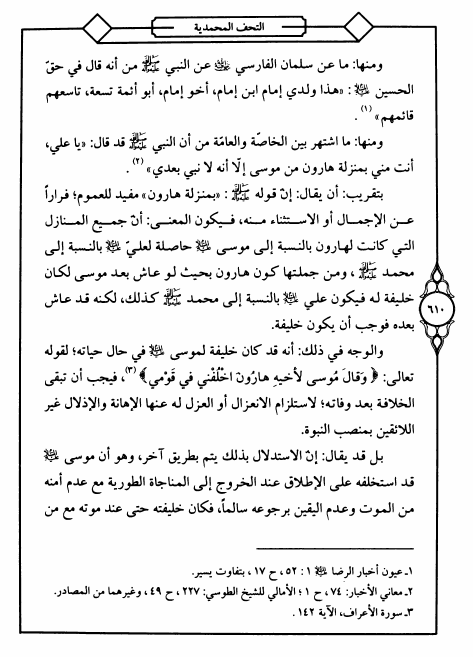 التحف المحمدية
ومنها: ما عن سلمان الفارسي عن النبي ﷺ من أنه قال في حقّ
الحسين : «هذا ولدي إمام ابن إمام، أخو إمام، أبو أئمة تسعة، تاسعهم
قائمهم» (١) .
ومنها: ما اشتهر بين الخاصّة والعامّة من أن النبي ﷺ قد قال: «يا علي،
أنت مني بمنزلة هارون من موسى إلّا أنه لا نبي بعدي» (٢) .
بتقريب: أن يقال: إنّ قوله ﷺ : «بمنزلة هارون» مفيد للعموم؛ فراراً
عن الإجمال أو الاستثناء منه، فيكون المعنى: أنّ جميع المنازل
التي كانت لهارون بالنسبة إلى موسى حاصلة لعليّ بالنسبة إلى
محمد ﷺ ، ومن جملتها كون هارون بحيث لو عاش بعد موسى لكان
خليفة له فيكون علي بالنسبة إلى محمد ﷺ كذلك، لكنه قد عاش
بعده فوجب أن يكون خليفة.
والوجه في ذلك: أنه قد كان خليفة لموسى في حال حياته؛ لقوله
تعالى: ﴿ وَقالَ مُوسى لأخيهِ هارُونَ اخْلُفْني في قَوْمي﴾ (٣)، فيجب أن تبقى
الخلافة بعد وفاته؛ لاستلزام الانعزال أو العزل له عنها الإهانة والإذلال غير
اللائقين بمنصب النبوة.
بل قد يقال: إنّ الاستدلال بذلك يتم بطريق آخر، وهو أن موسى
قد استخلفه على الإطلاق عند الخروج إلى المناجاة الطورية مع عدم أمنه
من الموت وعدم اليقين برجوعه سالماً، فكان خليفته حتى عند موته مع من
٦١٠
١ـ عيون أخبار الرضا ١ : ٥٢ ، ح ١٧ ، بتفاوت يسير.
٢ـ معاني الأخبار: ٧٤ ، ح ١ ؛ الأمالي للشيخ الطوسي: ٢٢٧ ، ح ٤٩ ، وغيرهما من المصادر.
٣ـ سورة الأعراف، الآية ١٤٢ .